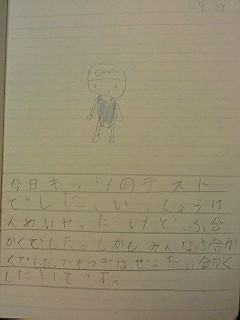 9.29
今日きッツのテスト
でした。いっしょうけ
んめいやったけど、ふ合
かくでした。しかもみんなふ合か
くでした。でもつぎはぜったい合かく
したいです。